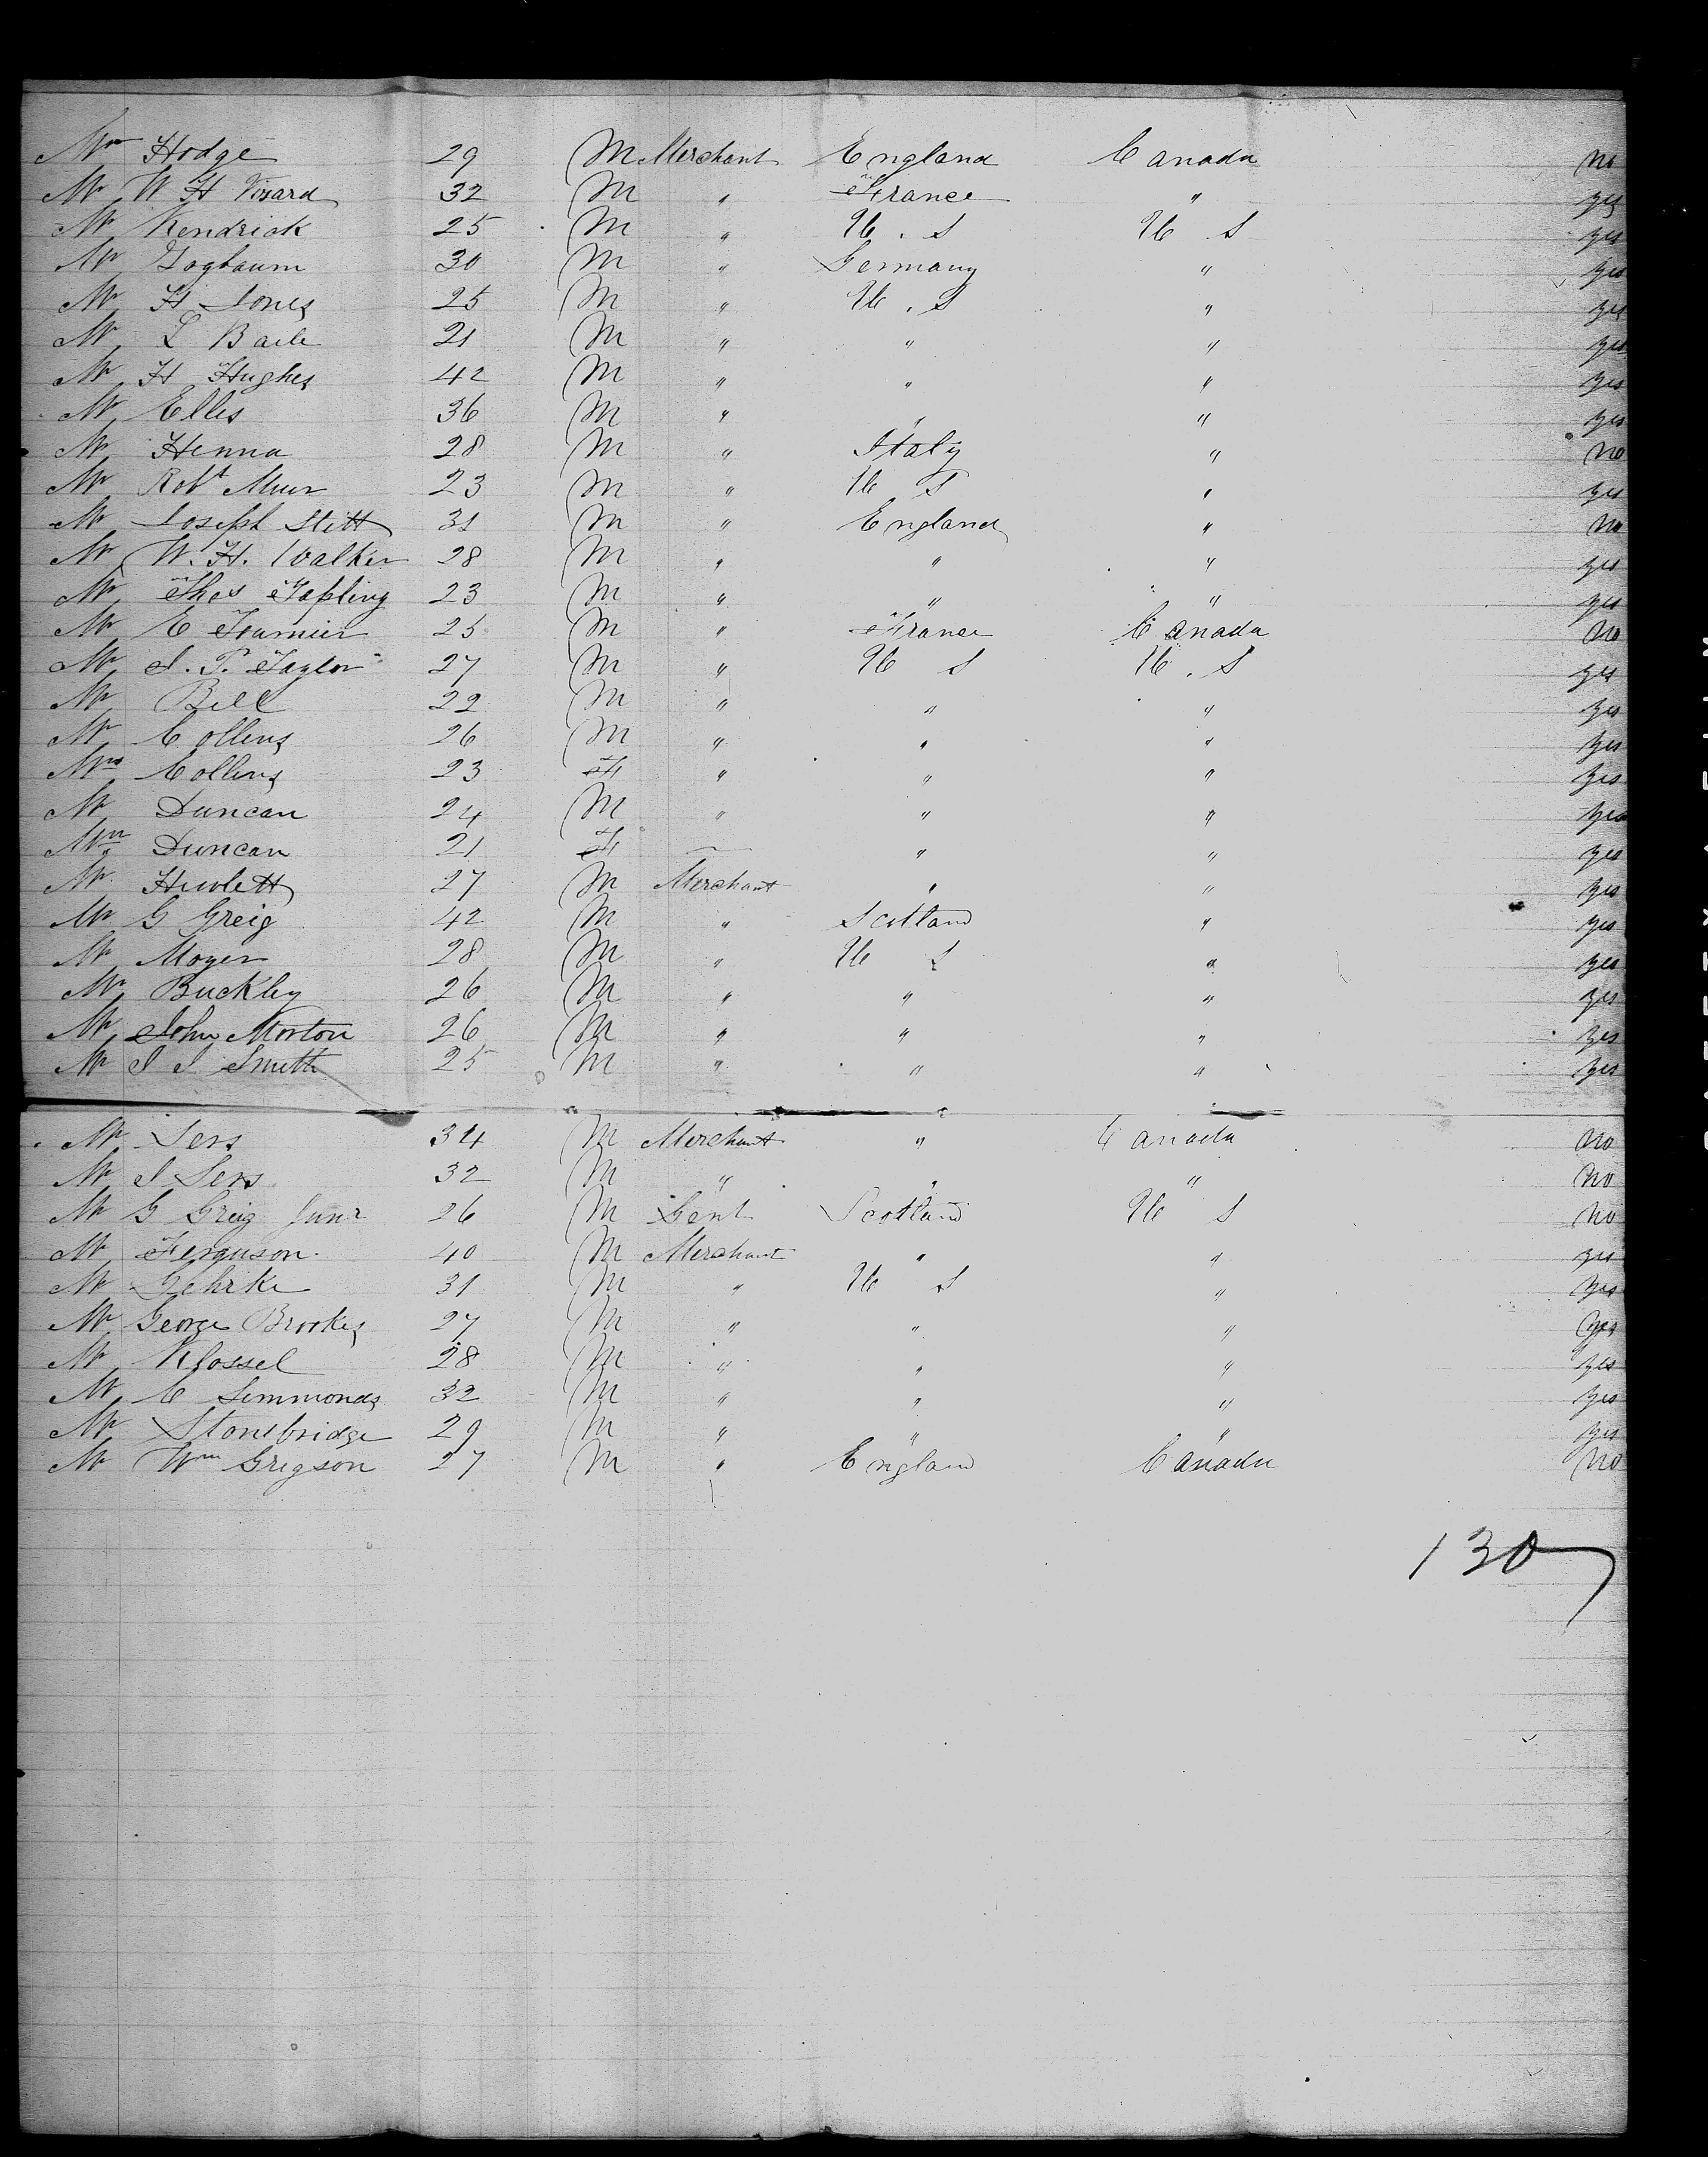 Mr Hodge 29 M Merchant England Canada no
Mr W H Vinard 32 M " France " yes
Mr Kendrick 25 M " U. S U S yes
Mr Gogbaum 30 M " Germany " yes
Mr H Jones 25 M " U. S " yes
Mr L Baile 21 M " " " yes
Mr H Hughes 42 M " " " yes
Mr Elles 36 M " " " yes
Mr Henna 28 M " Italy " no
Mr Robt Muir 23 M " U S " yes
Mr Joseph Stitt 31 M " England " no
Mr W. H. Walker 28 M " " " yes
Mr Thos Tapling 23 M " " " yes
Mr E Fournier 25 M " France Canada no
Mr J. P. Taylor 27 M " U S U. S yes
Mr Bell 22 M " " " yes
Mr Collens 26 M " " " yes
Mrs Collins 23 F " " " yes
Mr Duncan 24 M " " " yes
Mrs Duncan 21 F — " " yes
Mr Hewlett 27 M Merchant " " yes
Mr G Greig 42 M " Scotland " yes
Mr Moyer 28 M " U S " yes
Mr Buckley 26 M " " " yes
Mr John Morton 26 M " " " yes
Mr J J Smith 25 M " " " yes
Mr Sers 34 M Merchant " Canada no
Mr J Sers 32 M " " " no
Mr G Greig Junr 26 M Gent Scotland U S no
Mr Ferguson 40 M Merchant " " yes
Mr Gehrke 31 M " U S " yes
Mr George Brookes 27 M " " " yes
Mr Klossel 28 M " " " yes
Mr C Simmonds 32 M " " " yes
Mr Stonebridge 29 M " " " yes
Mr Wm Gregson 27 M " England Canada no
130